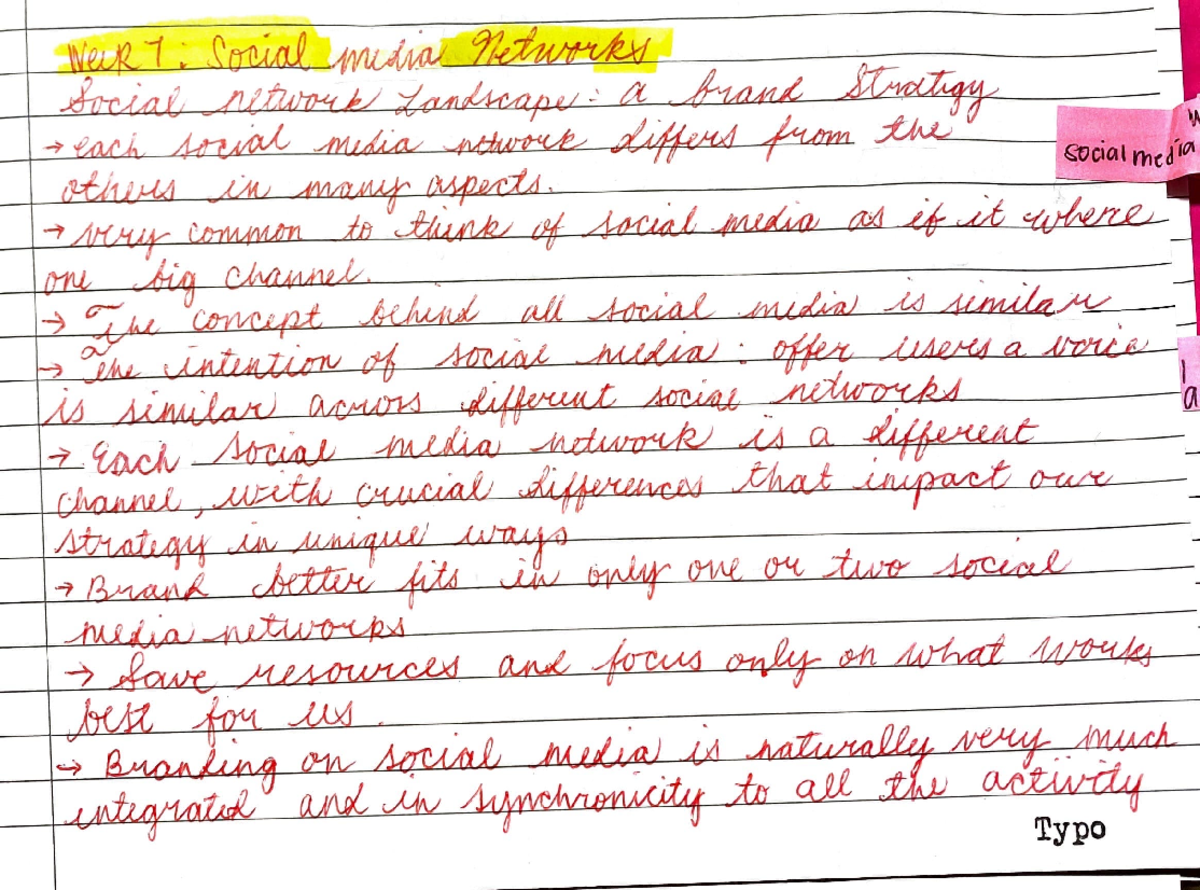 Week 7: Social media Networks
Social network Landscape: a brand Strategy
→ each social media network differs from the
social media
others in many aspects.
→ very common to think of social media as if it where
one big channel.
→ The concept behind all social media is similar
→ The intention of social media: offer users a voice
is similar across different social networks
→ Each social media network is a different
channel, with crucial differences that impact our
strategy in unique ways
→ Brand better fits in only one or two social
media networks
→ Save resources and focus only on what works
best for us.
→ Branding on social media is naturally very much
integrated and in synchronicity to all the activity
Typo